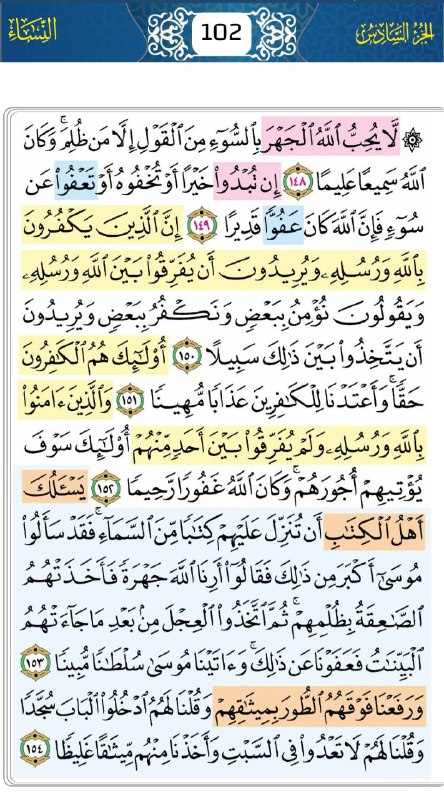 الجُزْءُ السَّادِسُ 102 النِّسَاءِ
۞ لَّا يُحِبُّ ٱللَّهُ ٱلْجَهْرَ بِٱلسُّوٓءِ مِنَ ٱلْقَوْلِ إِلَّا مَن ظُلِمَ ۚ وَكَانَ
ٱللَّهُ سَمِيعًا عَلِيمًا ١٤٨ إِن تُبْدُوا۟ خَيْرًا أَوْ تُخْفُوهُ أَوْ تَعْفُوا۟ عَن
سُوٓءٍ فَإِنَّ ٱللَّهَ كَانَ عَفُوًّا قَدِيرًا ١٤٩ إِنَّ ٱلَّذِينَ يَكْفُرُونَ
بِٱللَّهِ وَرُسُلِهِۦ وَيُرِيدُونَ أَن يُفَرِّقُوا۟ بَيْنَ ٱللَّهِ وَرُسُلِهِۦ
وَيَقُولُونَ نُؤْمِنُ بِبَعْضٍ وَنَكْفُرُ بِبَعْضٍ وَيُرِيدُونَ
أَن يَتَّخِذُوا۟ بَيْنَ ذَٰلِكَ سَبِيلًا ١٥٠ أُو۟لَٰٓئِكَ هُمُ ٱلْكَٰفِرُونَ
حَقًّا ۚ وَأَعْتَدْنَا لِلْكَٰفِرِينَ عَذَابًا مُّهِينًا ١٥١ وَٱلَّذِينَ ءَامَنُوا۟
بِٱللَّهِ وَرُسُلِهِۦ وَلَمْ يُفَرِّقُوا۟ بَيْنَ أَحَدٍ مِّنْهُمْ أُو۟لَٰٓئِكَ سَوْفَ
يُؤْتِيهِمْ أُجُورَهُمْ ۗ وَكَانَ ٱللَّهُ غَفُورًا رَّحِيمًا ١٥٢ يَسْـَٔلُكَ
أَهْلُ ٱلْكِتَٰبِ أَن تُنَزِّلَ عَلَيْهِمْ كِتَٰبًا مِّنَ ٱلسَّمَآءِ ۚ فَقَدْ سَأَلُوا۟
مُوسَىٰٓ أَكْبَرَ مِن ذَٰلِكَ فَقَالُوٓا۟ أَرِنَا ٱللَّهَ جَهْرَةً فَأَخَذَتْهُمُ
ٱلصَّٰعِقَةُ بِظُلْمِهِمْ ۚ ثُمَّ ٱتَّخَذُوا۟ ٱلْعِجْلَ مِنۢ بَعْدِ مَا جَآءَتْهُمُ
ٱلْبَيِّنَٰتُ فَعَفَوْنَا عَن ذَٰلِكَ ۚ وَءَاتَيْنَا مُوسَىٰ سُلْطَٰنًا مُّبِينًا ١٥٣
وَرَفَعْنَا فَوْقَهُمُ ٱلطُّورَ بِمِيثَٰقِهِمْ وَقُلْنَا لَهُمُ ٱدْخُلُوا۟ ٱلْبَابَ سُجَّدًا
وَقُلْنَا لَهُمْ لَا تَعْدُوا۟ فِى ٱلسَّبْتِ وَأَخَذْنَا مِنْهُم مِّيثَٰقًا غَلِيظًا ١٥٤